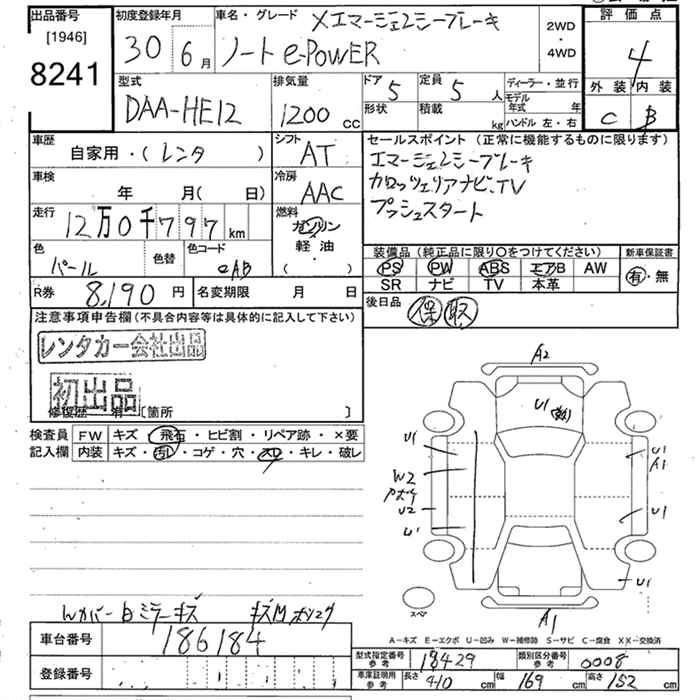 出品番号 初度登録年月 車名・グレード Xエマージェンシーブレーキ 2WD ・ 4WD 評価点
[1946]
8241 30年 6月 ノート e-POWER 4
外装 内装
C B
型式 排気量 ドア 定員 ディーラー・並行
DAA-HE12 1200 cc 5 5人 モデル年式 年
形状 積載 kg ハンドル 左・右
車歴 シフト セールスポイント (正常に機能するものに限ります)
自家用・(レンタ ) AT エマージェンシーブレーキ
車検 冷房 カロッツェリアナビ、TV
年 月( 日) AAC プッシュスタート
走行 燃料
12万0千797km ガソリン
軽油
( )
色 色替 色コード 装備品 (純正品に限り○をつけてください) 新車保証書
パール QAB PS PW ABS エアB AW 有・無
SR ナビ TV 本革
R券 8,190円 名変期限 月 日 後日品 保 取
注意事項申告欄 (不具合内容等は具体的に記入して下さい)
レンタカー会社出品
初出品
修復歴 有・〔箇所 〕
検査員 FW キズ・飛石・ヒビ割・リペア跡・×要
記入欄 内装 キズ・汚レ・コゲ・穴・スレ・キレ・破レ
A2
U1
U1
W2
U2
U1
A1
U1
U1
スペア
A1
A-キズ E-エクボ U-凹み W-補修跡 S-サビ C-腐食 XX-交換済
車台番号 186184
登録番号
型式指定番号 参考 18429 類別区分番号 参考 0008
車庫証明用 参考 長さ 410 cm 幅 169 cm 高さ 152 cm